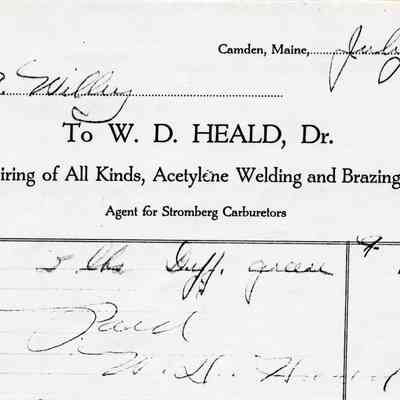 Camden, Maine, July
Willey
To W. D. HEALD, Dr.
iring of All Kinds, Acetylene Welding and Brazing
Agent for Stromberg Carburetors
5 lbs Diff. grease
Paid
W. D. Heald